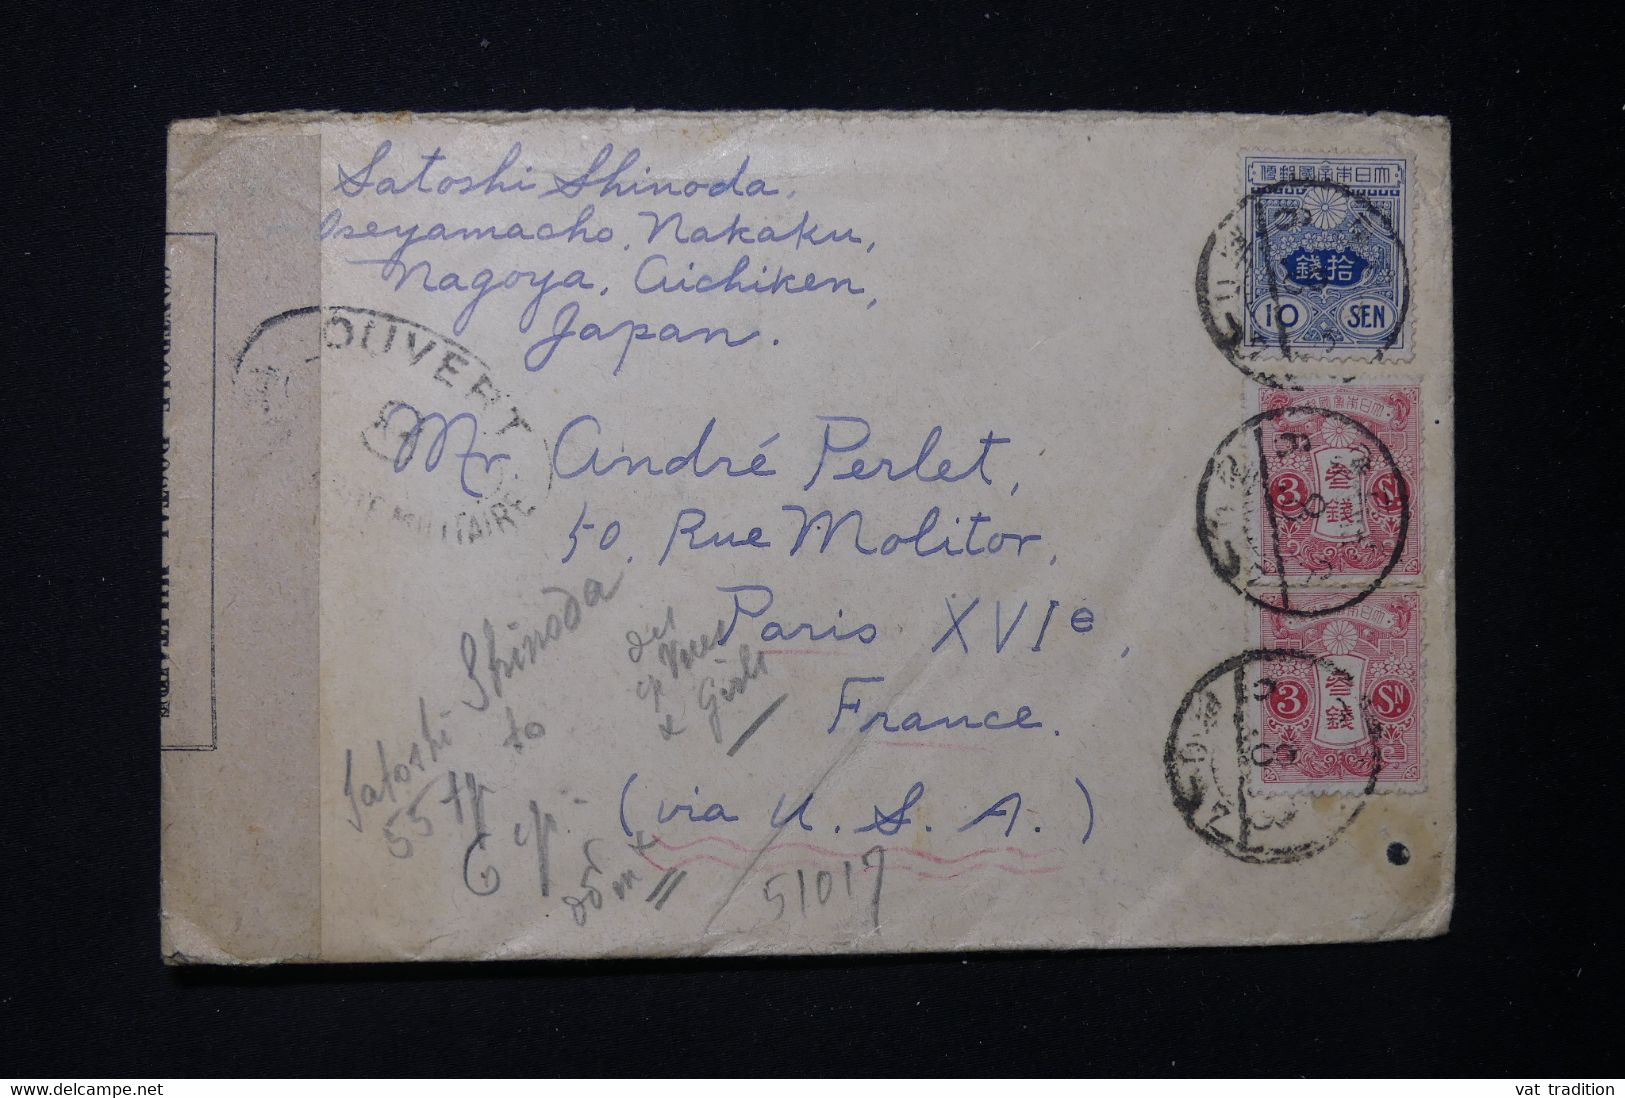 Satoshi Shinoda,
Oseyamacho, Nakaku,
Nagoya, Aichiken,
Japan.
OUVERT
MILITAIRE
CONTROLE POSTAL MILITAIRE
Mr. André Perlet,
50, Rue Molitor,
Paris XVIe,
France.
(via U. S. A.)
Satoshi Shinoda
55
to
6
& Girls
51017
大日本帝國郵便
拾錢
10 SEN
大日本帝國郵便
3 参錢 Sn.
大日本帝國郵便
3 参錢 Sn.
vat tradition